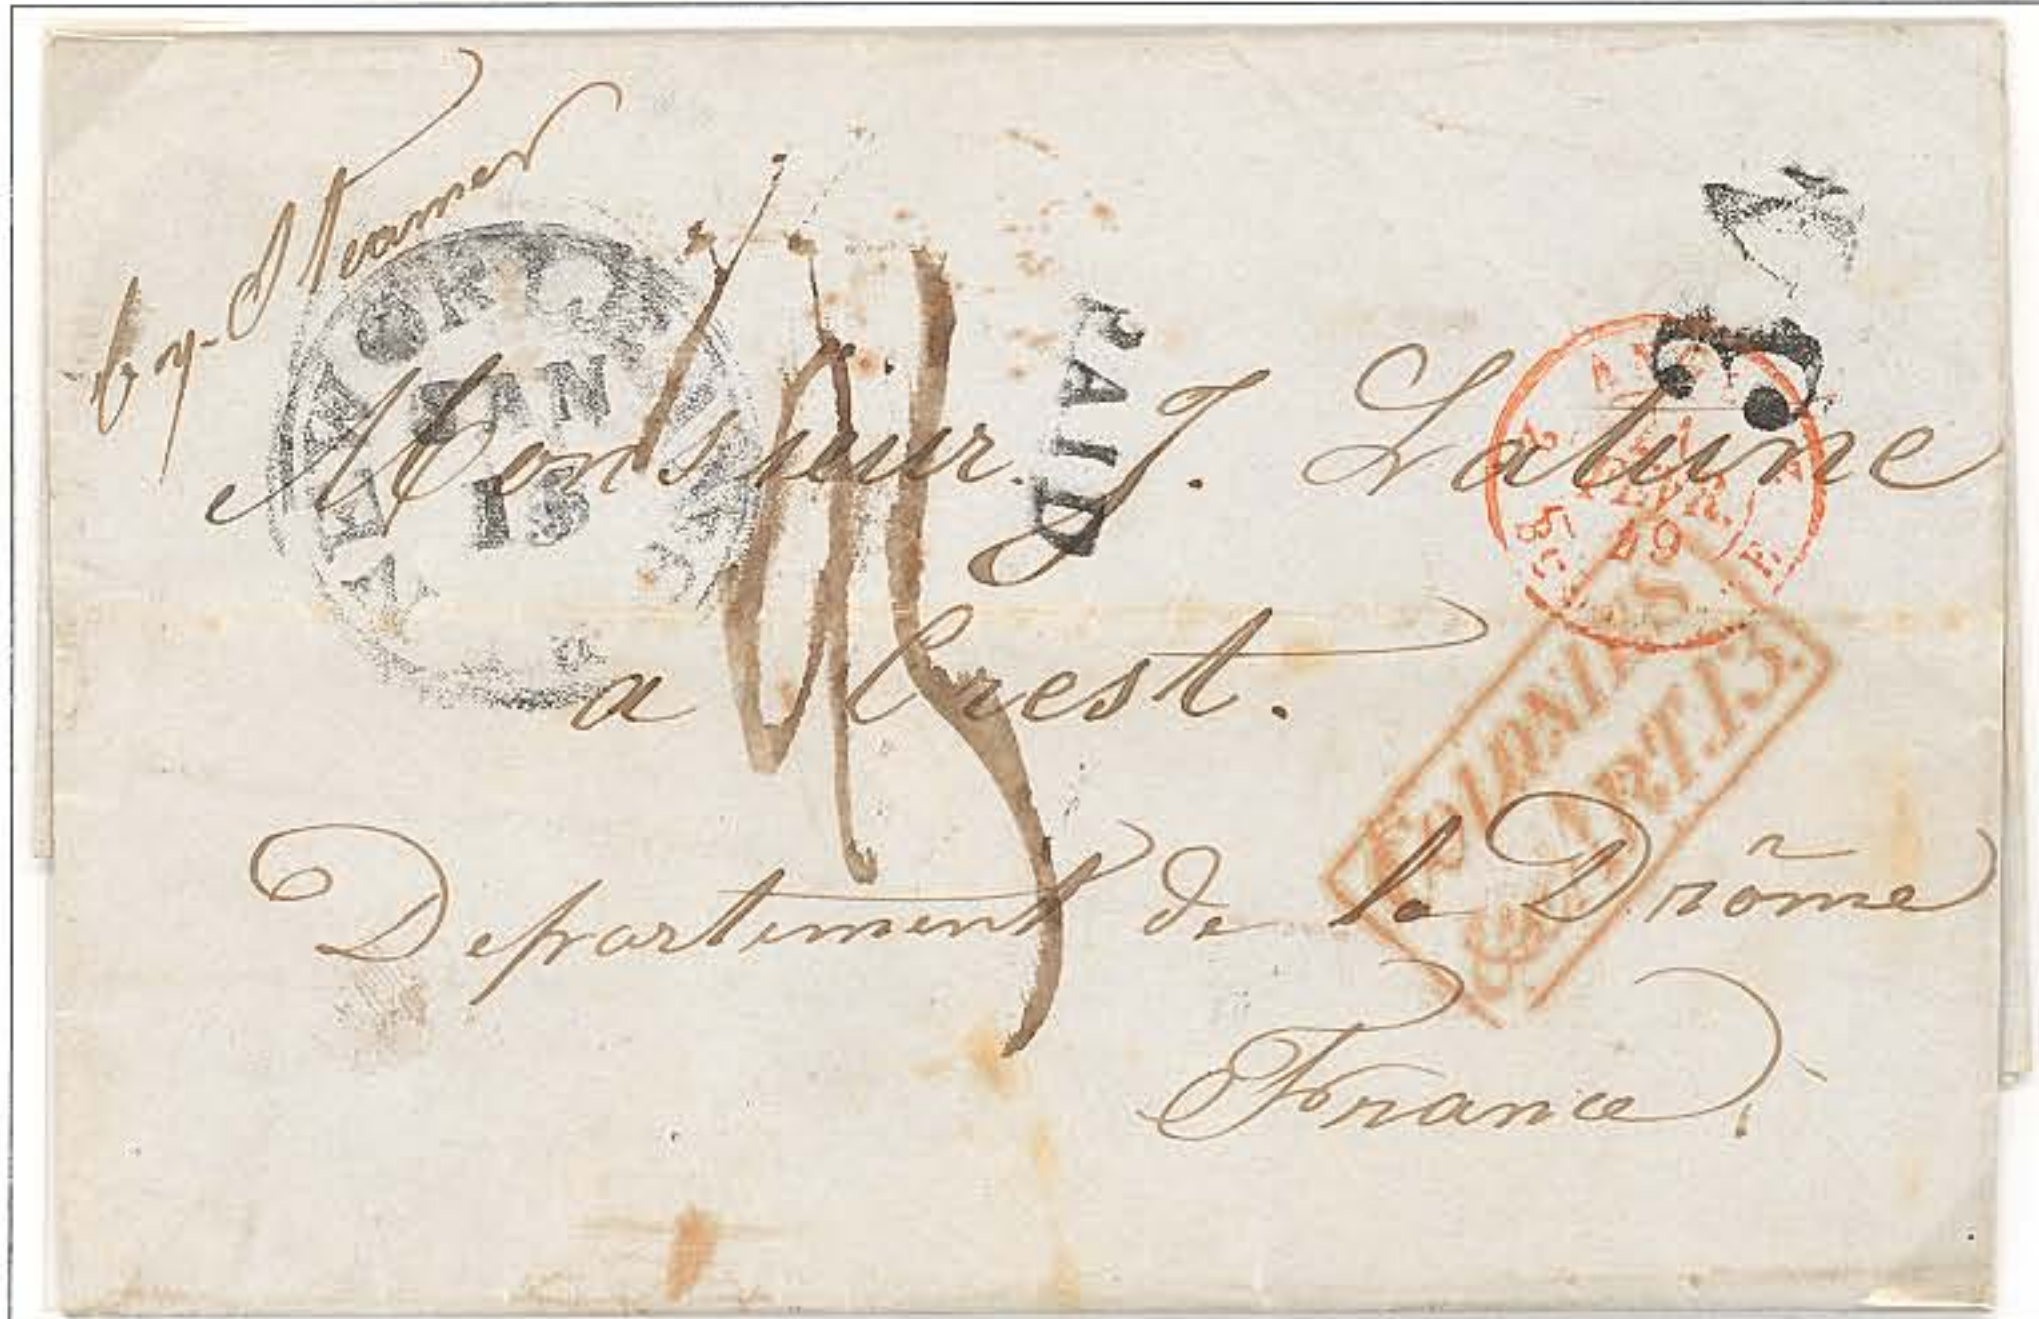 by Steamer
NEW ORLEANS
JAN
13
PAID
Monsieur J. Latune
a Crest.
Departement de la Drôme
France
ANGL.
21
FEVR.
49
COLONIES
&c. ART. 13.